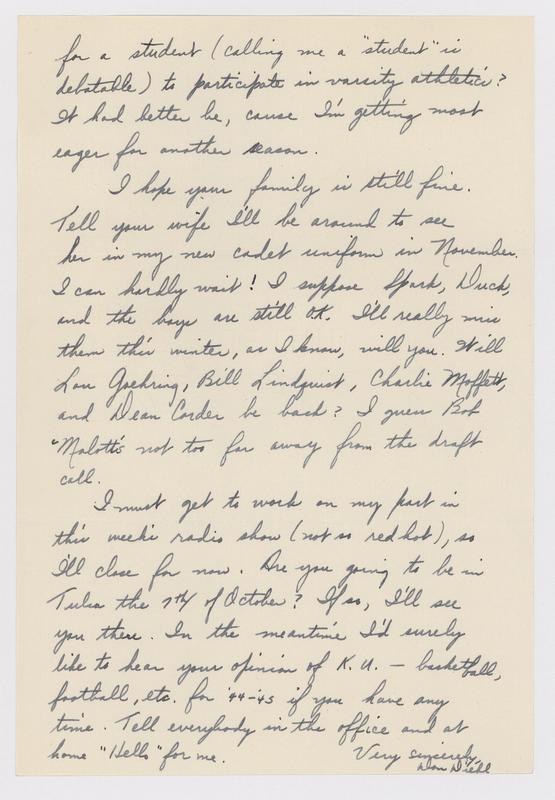 for a student (calling me a "student" is
debatable) to participate in varsity athletics?
It had better be, cause I'm getting most
eager for another season.
I hope your family is still fine.
Tell your wife I'll be around to see
her in my new cadet uniform in November.
I can hardly wait! I suppose Spark, Duck,
and the boys are still O.K. I'll really miss
them this winter, as I know, will you. Will
Lou Goehring, Bill Lindquist, Charlie Moffett,
and Dean Corder be back? I guess Bob
"Malott's not too far away from the draft
call.
I must get to work on my part in
this week's radio show (not so red hot), so
I'll close for now. Are you going to be in
Tulsa the 7th of October? If so, I'll see
you there. In the meantime I'd surely
like to hear your opinion of K.U. — basketball,
football, etc. for '44-45 if you have any
time. Tell everybody in the office and at
home "Hello" for me. Very sincerely,
Don Diehl